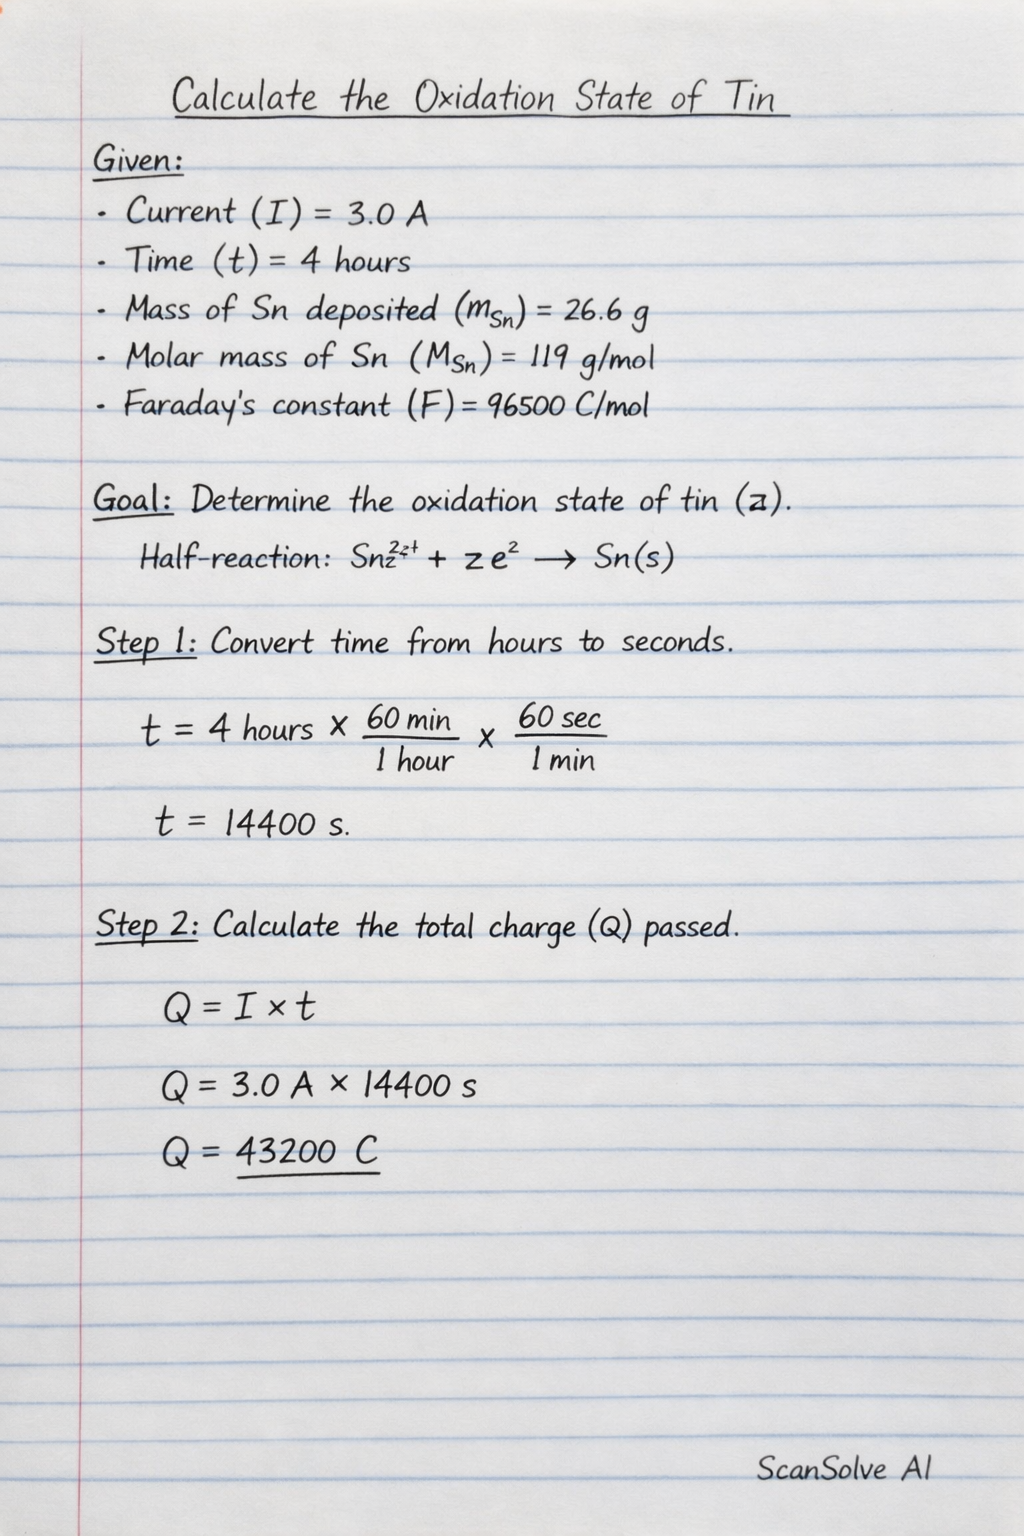 Calculate the Oxidation State of Tin
Given:
· Current (I) = 3.0 A
· Time (t) = 4 hours
· Mass of Sn deposited (mSn) = 26.6 g
· Molar mass of Sn (MSn) = 119 g/mol
· Faraday's constant (F) = 96500 C/mol
Goal: Determine the oxidation state of tin (z).
Half-reaction: Sn + z e² → Sn(s)
Step 1: Convert time from hours to seconds.
t = 4 hours × 60 min / 1 hour × 60 sec / 1 min
t = 14400 s.
Step 2: Calculate the total charge (Q) passed.
Q = I × t
Q = 3.0 A × 14400 s
Q = 43200 C
ScanSolve AI